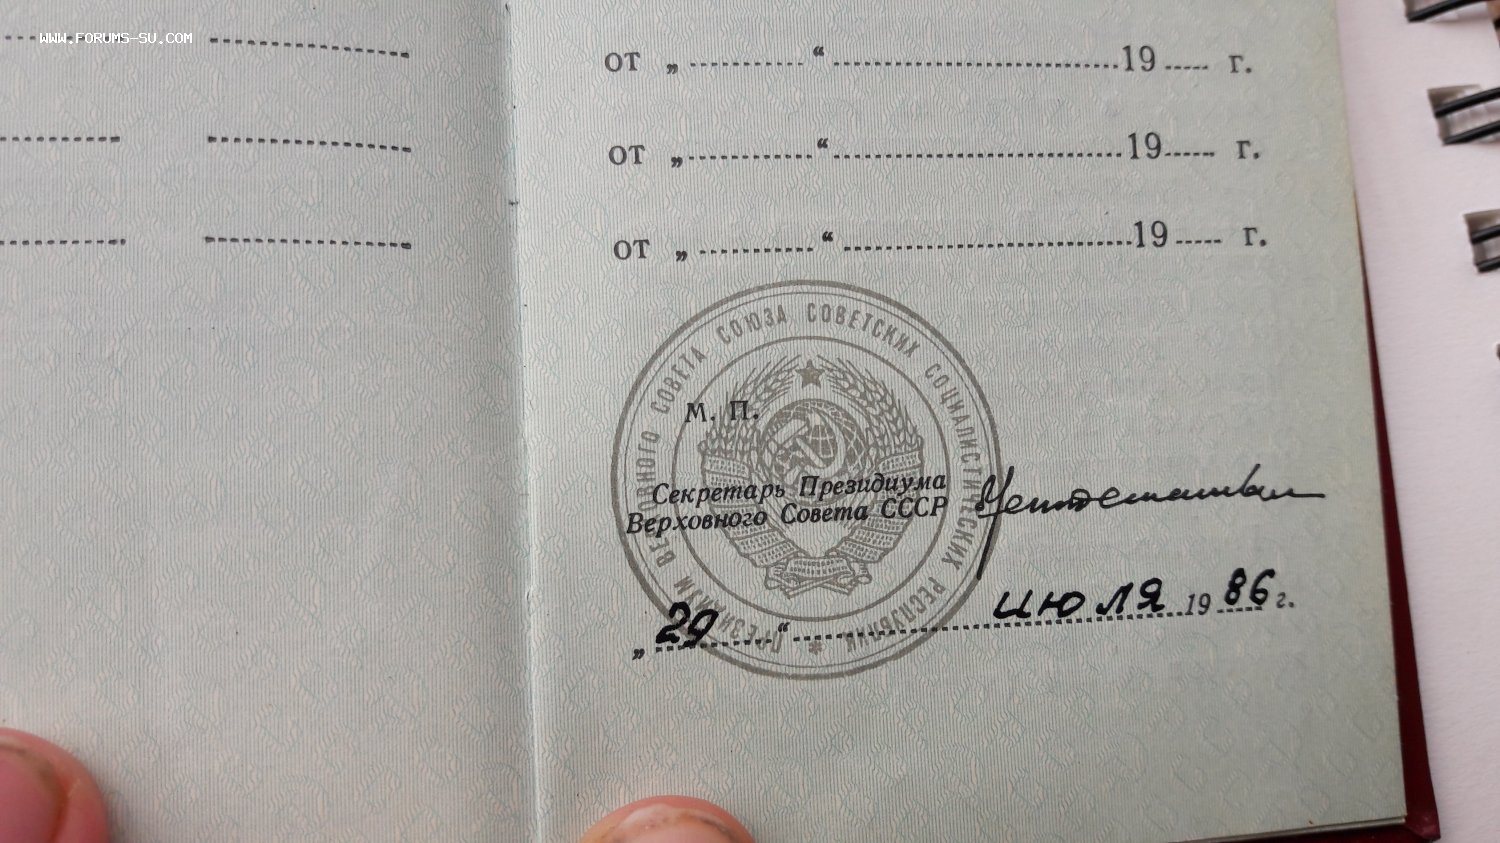 WWW.FORUMS-SU.COM
от „ “ 19 г.
от „ “ 19 г.
от „ “ 19 г.
ПРЕЗИДИУМ ВЕРХОВНОГО СОВЕТА СОЮЗА СОВЕТСКИХ СОЦИАЛИСТИЧЕСКИХ РЕСПУБЛИК
М. П.
Секретарь Президиума
Верховного Совета СССР
„29“ июля 1986 г.